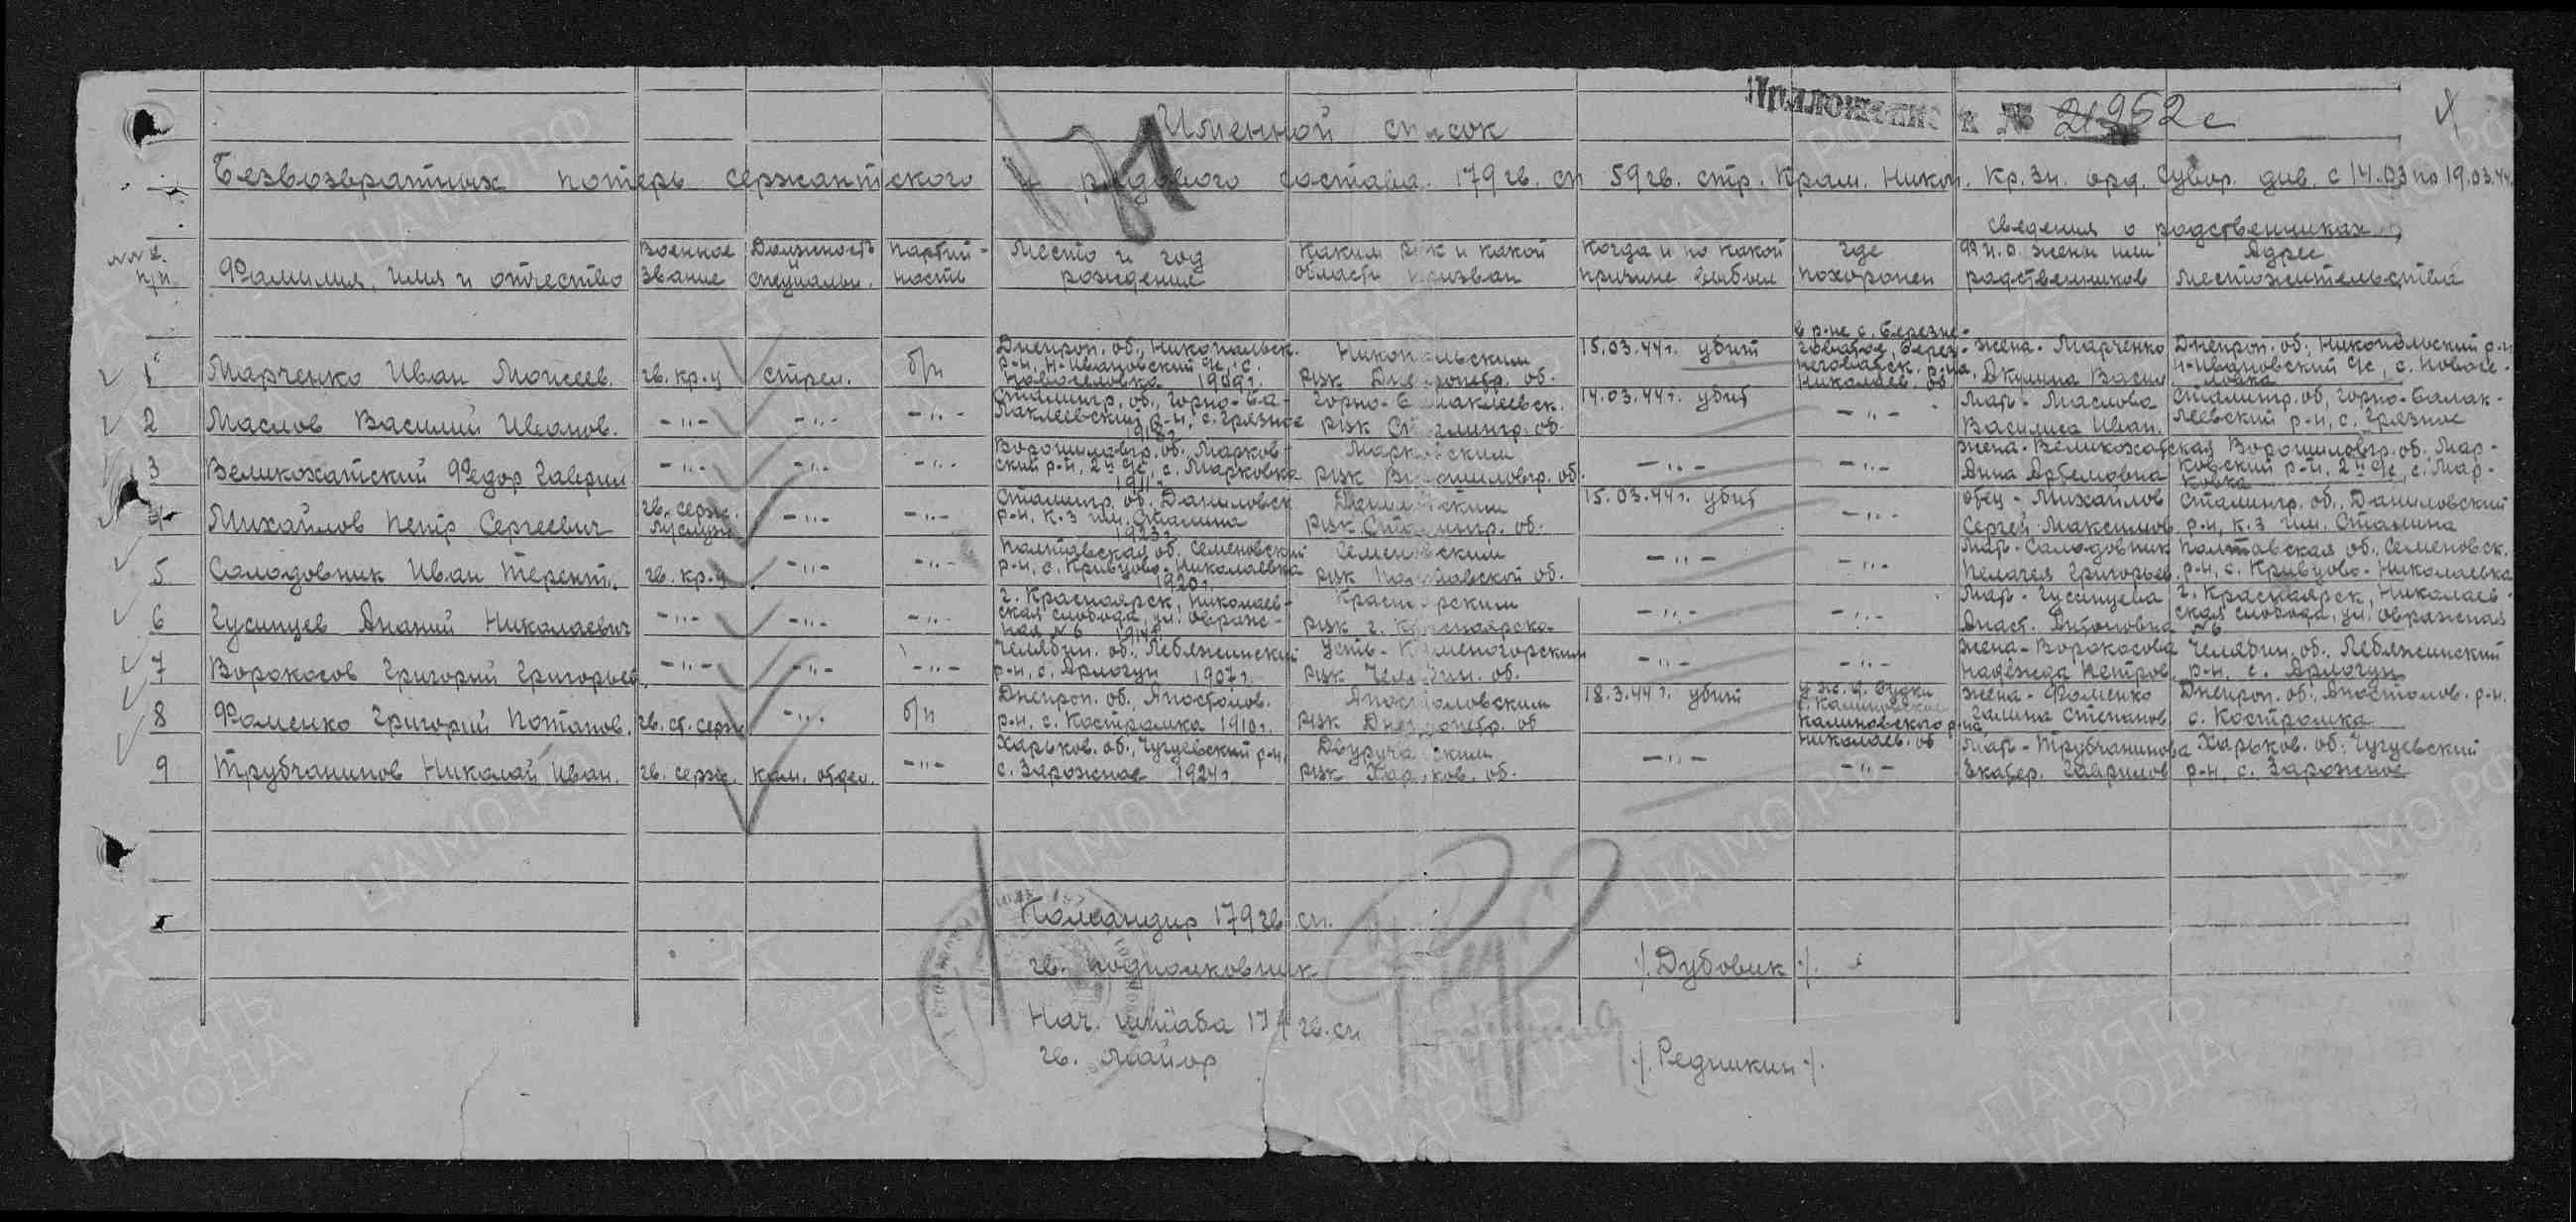 Приложение к № 21952с
4
Именной список
Безвозвратных потерь сержантского и рядового состава 179 гв. сп 59 гв. стр. Крам. Никоп. Кр. Зн. орд. Сувор. див. с 14.03 по 19.03.44.
Сведения о родственниках
№№ п/п. Фамилия, имя и отчество Военное звание Должность и специальн. Партий-ность Место и год рождения Каким рвк и какой области призван Когда и по какой причине выбыл Где похоронен Ф.И.О. жены или родственников Адрес местожительства
1 Марченко Иван Моисеев. гв. кр-ц стрел. б/п Днепроп. об., Никопольск. р-н, Н-Ивановский с/с, с. Новоселовка 1909г. Никопольским РВК Днепропетр. об. 15.03.44г. убит в р-не с. Березнеговатое, Березнеговатск. р-на, Николаев. об. жена - Марченко Акулина Васил. Днепроп. об., Никопольский р-н Н-Ивановский с/с, с. Новоселовка
2 Маслов Василий Иванов. -"- -"- -"- Сталингр. об., Горно-Балаклеевский р-н, с. Грязное Горно-Балаклеевск. РВК Сталингр. об. 14.03.44г. убит -"- Мать - Маслова Василиса Иван. Сталингр. об, Горно-Балаклеевский р-н, с. Грязное
3 Великохатский Федор Гаврил -"- -"- -"- Ворошиловгр. об. Марковский р-н, 2й с/с, с. Марковка 1911г. Марковским РВК Ворошиловгр. об. -"- -"- жена - Великохатская Анна Артемовна Ворошиловгр. об. Марковский р-н, 2й с/с, с. Марковка
4 Михайлов Петр Сергеевич гв. серж. -"- -"- Сталингр. об. Даниловск. р-н, к-з им. Сталина 1923г. Даниловским РВК Сталингр. об. 15.03.44г. убит -"- отец - Михайлов Сергей Максимов. Сталингр. об., Даниловский р-н, к-з им. Сталина
5 Солодовник Иван Терент. гв. кр-ц -"- -"- Полтавская об. Семеновский р-н, с. Кривцово-Николаевка 1920г. Семеновским РВК Полтавской об. -"- -"- Мать - Солодовник Пелагея Григорьев. Полтавская об., Семеновск. р-н, с. Кривцово-Николаевка
6 Гусинцев Ананий Николаевич -"- -"- -"- г. Красноярск, Николаевская слобода, ул. Овражная №6 Красноярским РВК г. Красноярска -"- -"- Мать - Гусинцева Анаст. Антоновна г. Красноярск, Николаевская слобода, ул. Овражная №6
7 Ворокосов Григорий Григорьев. -"- -"- -"- Челябин. об., Лебяжинский р-н, с. Арлогуп 1907г. Усть-Каменогорским РВК Челябин. об. -"- -"- жена - Ворокосова Надежда Петров. Челябин. об., Лебяжинский р-н, с. Арлогуп
8 Фоменко Григорий Потапов. гв. ст. серж -"- б/п Днепроп. об. Апостолов. р-н, с. Костромка 1910г. Апостоловским РВК Днепропетр. об 18.3.44г. убит у ж.д. будки с. Калиновское Калиновского р-на Николаев. об жена - Фоменко Галина Степанов. Днепроп. об. Апостолов. р-н. с. Костромка
9 Трубчанинов Николай Иван. гв. серж. ком. отдел. -"- Харьков. об., Чугуевский р-н, с. Зарожное 1924г. Двуречанским РВК Харьков. об. -"- -"- Мать - Трубчанинова Екатер. Гаврилов. Харьков. об. Чугуевский р-н, с. Зарожное
Командир 179 гв. сп.
гв. подполковник /.Дубовик./.
Нач. штаба 179 гв. сп
гв. майор /.Редичкин./.
ЦАМО.РФ
ПАМЯТЬ НАРОДА